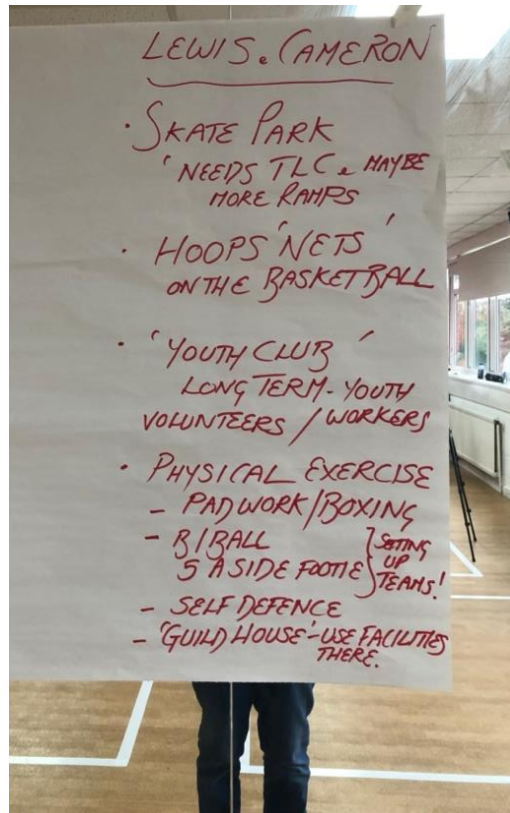 LEWIS & CAMERON
· SKATE PARK
'NEEDS TLC & MAYBE
MORE RAMPS'
· HOOPS 'NETS'
ON THE BASKETBALL
· 'YOUTH CLUB'
LONG TERM - YOUTH
VOLUNTEERS / WORKERS
· PHYSICAL EXERCISE
- PADWORK/BOXING
- B/BALL
5 A SIDE FOOTIE } SETTING
UP
TEAMS!
- SELF DEFENCE
- 'GUILD HOUSE' - USE FACILITIES
THERE.